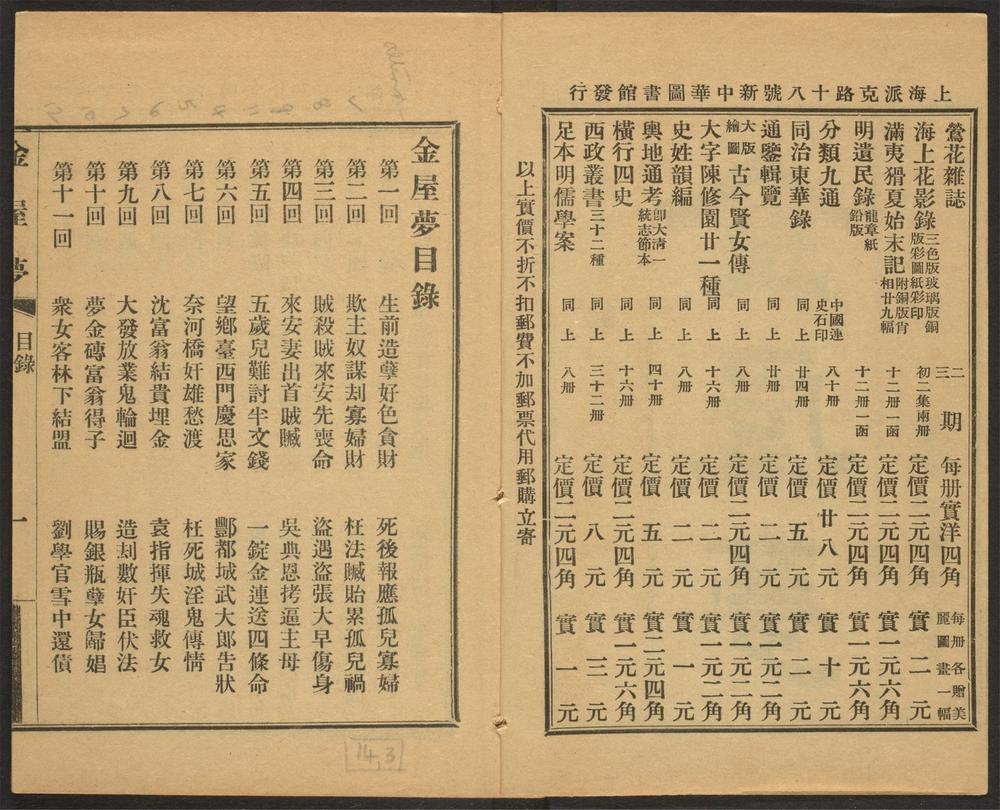 上海派克路十八號新中華圖書館發行
鶯花雜誌 二三期 每册實洋四角 每册各贈美麗圖畫一幅
海上花影錄 三色版玻璃版銅版彩圖紙彩印 初二集兩册 定價二元四角 實二元
滿夷猾夏始末記 附銅版肖相廿九幅 十二册一函 定價二元四角 實一元六角
明遺民錄 龍章紙鉛版 十二册一函 定價二元四角 實一元六角
分類九通 中國連史石印 八十册 定價廿八元 實十元
同治東華錄 同上 廿四册 定價五元 實二元
通鑒輯覽 同上 廿册 定價二元 實一元二角
大版繪圖 古今賢女傳 同上 八册 定價二元四角 實一元二角
大字陳修園廿一種 同上 十六册 定價二元 實一元二角
史姓韻編 同上 八册 定價二元 實一元
輿地通考 卽大清一統志節本 同上 四十册 定價五元 實二元四角
橫行四史 同上 十六册 定價二元四角 實一元六角
西政叢書 三十二種 同上 三十二册 定價八元 實三元
足本明儒學案 同上 八册 定價二元四角 實一元
以上實價不折不扣郵費不加郵票代用郵購立寄
金屋夢目錄
第一回 生前造孽好色貪財 死後報應孤兒寡婦
第二回 欺主奴謀刦寡婦財 枉法贓貽累孤兒禍
第三回 賊殺賊來安先喪命 盜遇盜張大早傷身
第四回 來安妻出首賊贓 吳典恩拷逼主母
第五回 五歲兒難討半文錢 一錠金連送四條命
第六回 望鄉臺西門慶思家 酆都城武大郎告狀
第七回 奈河橋奸雄愁渡 枉死城淫鬼傳情
第八回 沈富翁結貴埋金 袁指揮失魂救女
第九回 大發放業鬼輪迴 造刦數奸臣伏法
第十回 夢金磚富翁得子 賜銀瓶孽女歸娼
第十一回 衆女客林下結盟 劉學官雪中還債
金屋夢 目錄 一
14,3